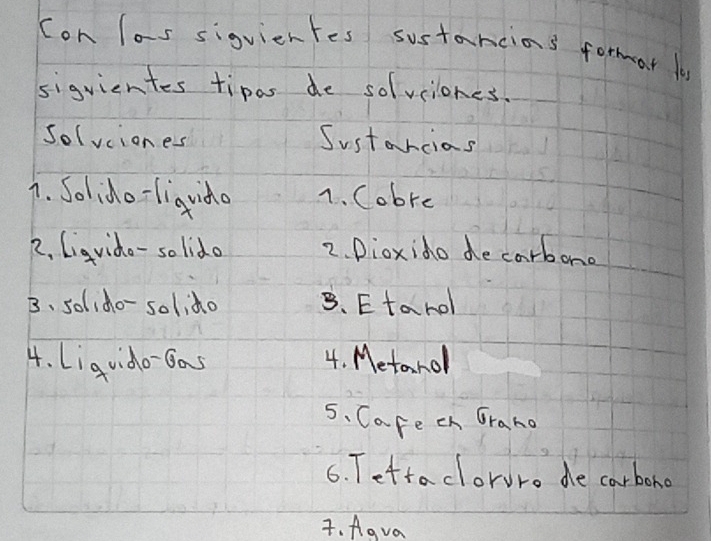 Con las siguientes sustancias formar los
siguientes tipos de soluciones.
Soluciones Sustancias
1. Solido-liquido 1. Cobre
2. Liquido-solido 2. Dioxido de carbono
3. solido-solido 3. Etanol
4. Liquido-Gas 4. Metanol
5. Cafe en Grano
6. Tettacloruro de carbono
7. Agua